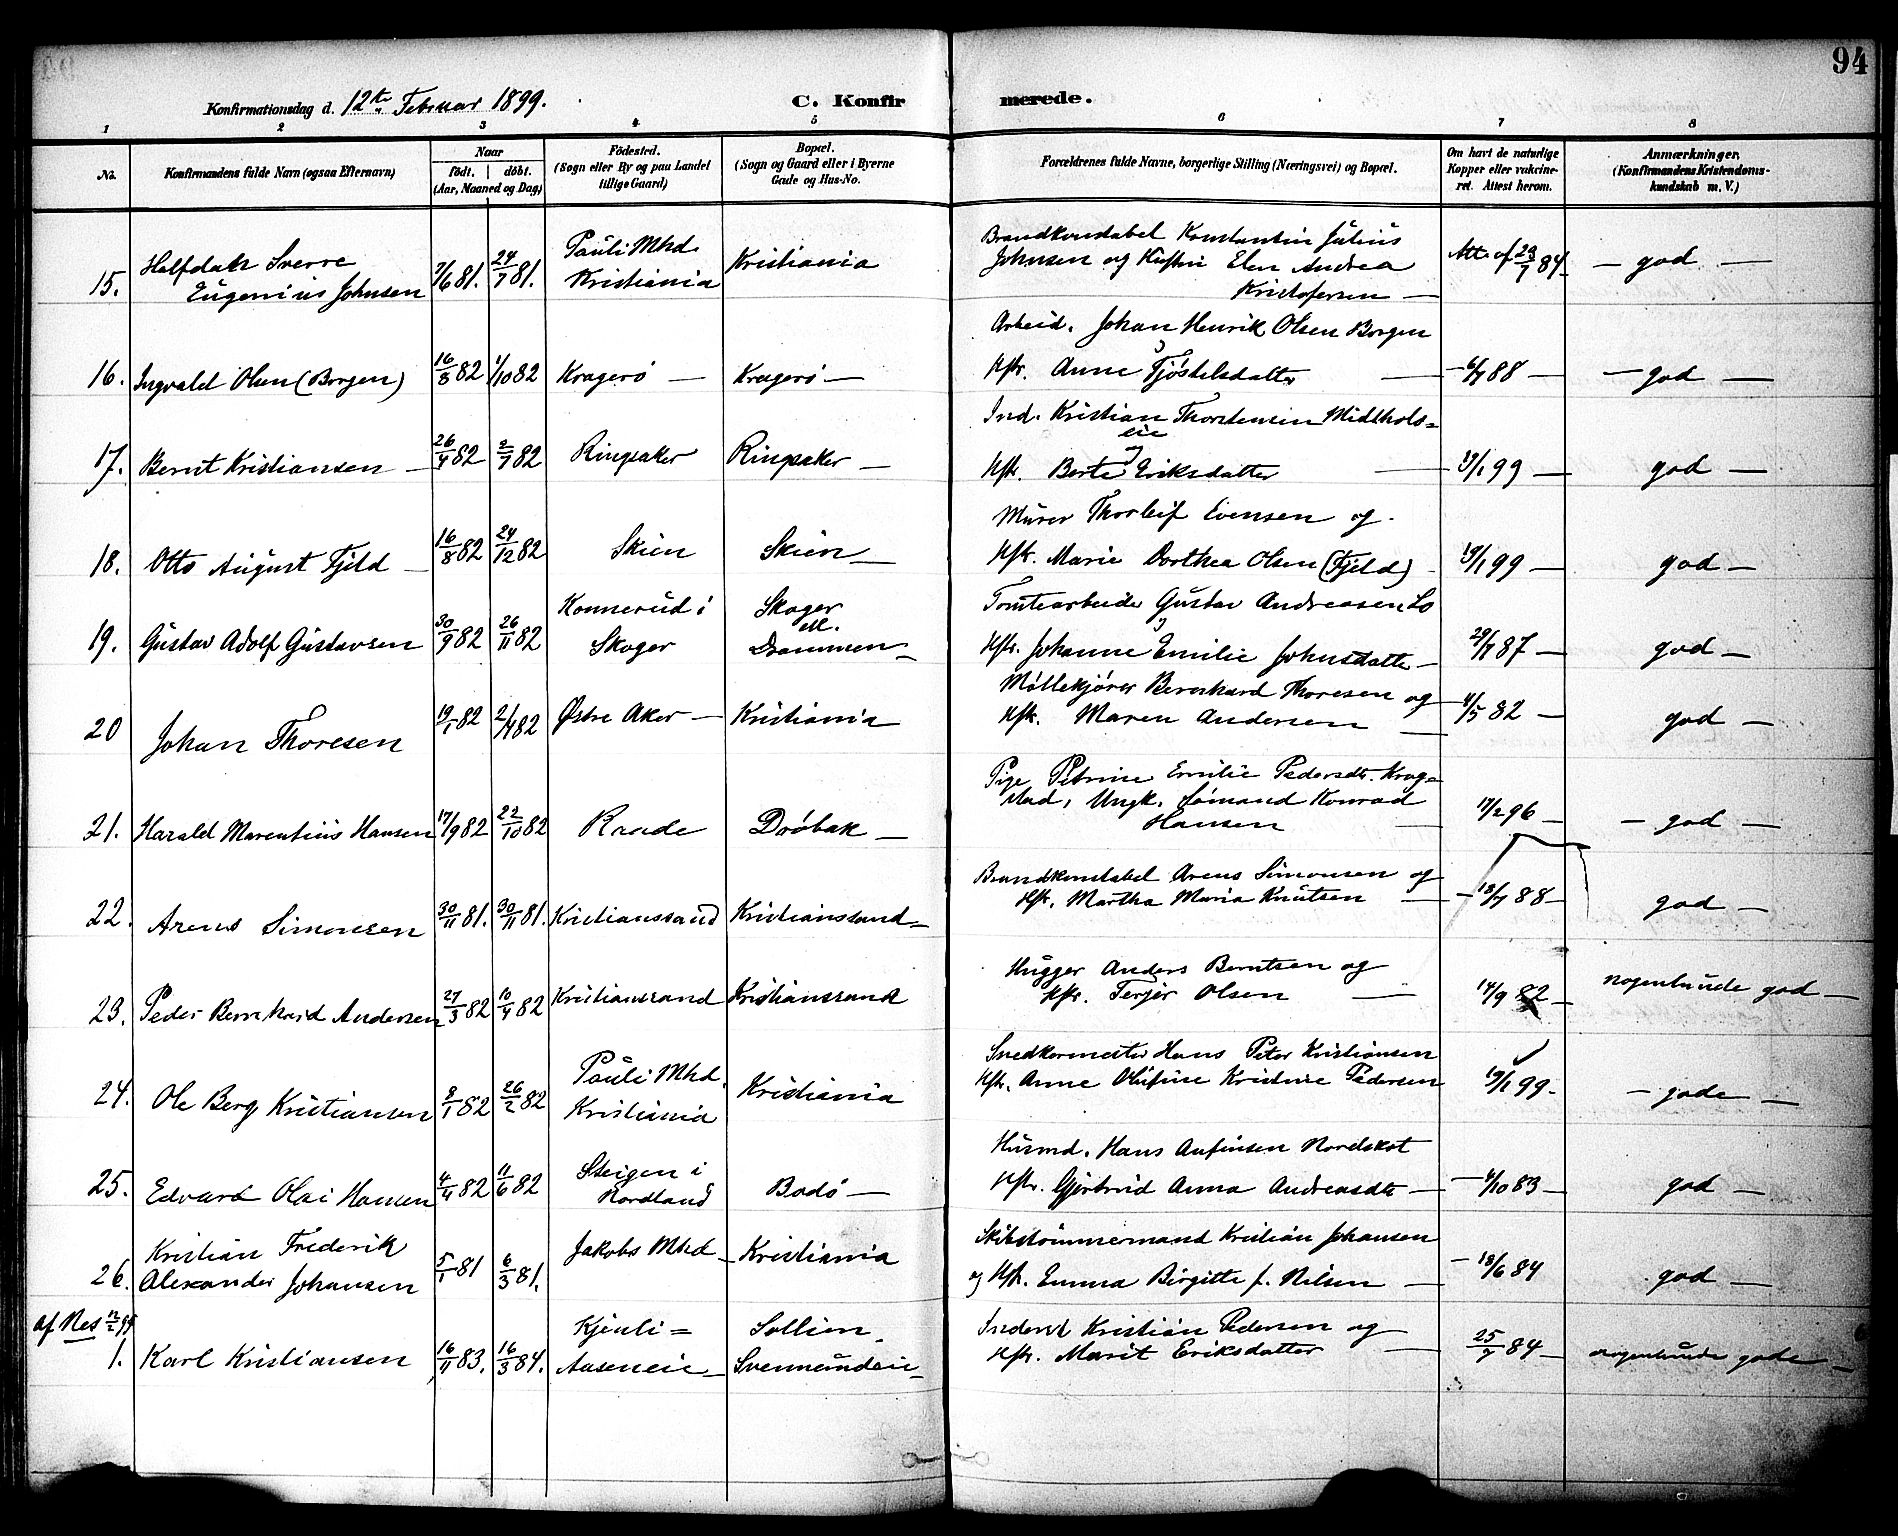 94
Konfirmationsdag d. 12te Februar 1899.
C. Konfirmerede.
1 2 3 4 5 6 7 8
No.
Konfirmandens fulde Navn (ogsaa Efternavn)
Naar
födt. döbt.
(Aar, Maaned og Dag)
Födested.
(Sogn eller By og paa Landet
tillige Gaard)
Bopæl.
(Sogn og Gaard eller i Byerne
Gade og Hus-No.
Forældrenes fulde Navne, borgerlige Stilling (Næringsvei) og Bopæl.
Om havt de naturlige
Kopper eller vakcine-
ret. Attest herom.
Anmærkninger.
(Konfirmandens Kristendoms-
kundskab m. V.)
15. Halfdan Sverre
Eugenius Johnsen
7/6 81. 24/7 81.
Pauli Mhd.
Kristiania
Kristiania
Brandkonstabel Konstantin Julius
Johnsen og Hustru Elen Andrea
Kristofersen —
Att. af 23/7 84
— god —
16. Ingvald Olsen (Borgen)
16/8 82 1/10 82
Kragerö — Kragerö —
Arbeid. Johan Henrik Olsen Borgen
Hstr. Anne Tjöstelsdatter —
— 6/7 88 —
— god —
17. Bernt Kristiansen —
26/4 82 2/7 82
Ringsaker Ringsaker —
Ind. Kristian Thorstensen Midthols=
eie
Hstr. Berte Eriksdatter —
13/1 99 —
god —
18. Otto August Fjeld —
16/8 82 24/12 82
Skien Skien —
Murer Thorleif Evensen og
Hstr. Marie Dorthea Olsen (Fjeld)
19/1 99 —
god —
19. Gustav Adolf Gustavsen
30/9 82 26/11 82
Konnerud i
Skoger
Skoger
ell.
Drammen —
Tomtearbeider Gustav Andreasen Lo
Hstr. Johanne Emilie Johnsdatter —
29/7 87 —
god —
20 Johan Thoresen
19/1 82 2/4 82
Östre Aker — Kristiania
Möllekjörer Bernhard Thoresen og
Hstr. Maren Andersen —
4/5 82 —
god —
21. Harald Marentius Hansen
17/9 82 22/10 82
Raade Dröbak —
Pige Petrine Emilie Pedersdtr. Krog=
stad, Ungk. Sömand Konrad
Hansen —
17/2 96 —
— god —
22. Arens Simonsen
30/11 81. 30/11 81.
Kristianssand Kristianssand —
Brandkonstabel Arens Simonsen og
Hstr. Martha Maria Knutsen —
— 18/7 88 —
god —
23. Peder Bernhard Andersen
27/3 82 10/4 82
Kristianssand Kristianssand
Hugger Anders Berntsen og
Hstr. Terjer Olsen —
14/9 82 —
nogenlunde god —
24. Ole Berg Kristiansen
8/1 82 26/2 82
Pauli Mhd.
Kristiania
Kristiania
Snedkermester Hans Peter Kristiansen
Hstr. Anne Olufine Kristine Pedersen
19/1 99.
— gode —
25. Edvard Olai Hansen
4/4 82 11/6 82
Steigen i
Nordland
Bodö —
Husmd. Hans Anfinsen Nordskot
Hstr. Gjertrud Anna Andreasdtr —
— 4/10 83 —
god —
26. Kristian Frederik
Alexander Johansen
5/1 81 6/3 81.
Jakobs Mhd — Kristiania
Skibstömmermand Kristian Johansen
og Hstr. Emma Birgitte f. Nilsen —
— 18/6 84
god —
af Nes 12/2 99
1. Karl Kristiansen
16/11 83. 16/3 84.
Kjenli=
Aaseneie —
Sollien.
Svenneundeie —
Inderst Kristian Pedersen og
Hstr. Marit Eriksdatter —
25/7 84 —
nogenlunde gode —